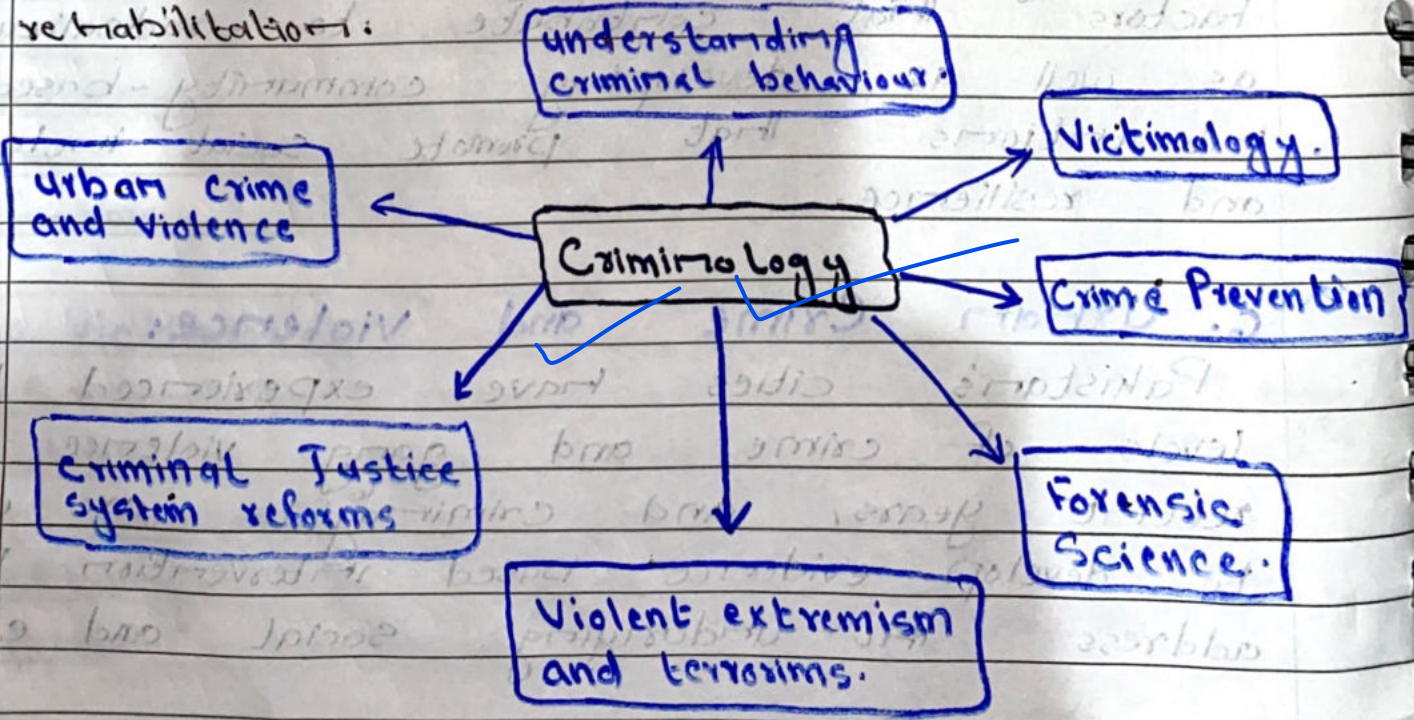 rehabilitation.
understanding
criminal behaviour.
Victimology.
urban crime
and violence
Criminology
Crime Prevention
Criminal Justice
system reforms
Forensic
Science.
Violent extremism
and terrorims.